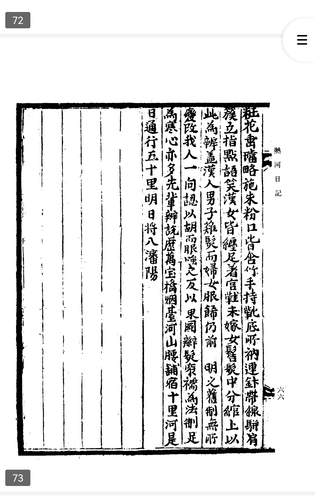 72
熱河日記
六六
旺花畵璫略施朱粉口皆含竹手持靴底所衲運針帶線騈肩
簇立指點語笑漢女皆纏足着宮鞋未嫁女鬟髮中分綰上以
此爲辨盖漢人男子雖髡而婦女服飾仍前明之舊制無所
變改我人一向認以胡而服
之反以
國辮髮
襦爲法制足
爲寒心亦多先輩辨說歷萬宝橋烟臺河山腰鋪宿十里河是
日通行五十里明日將入瀋陽
73